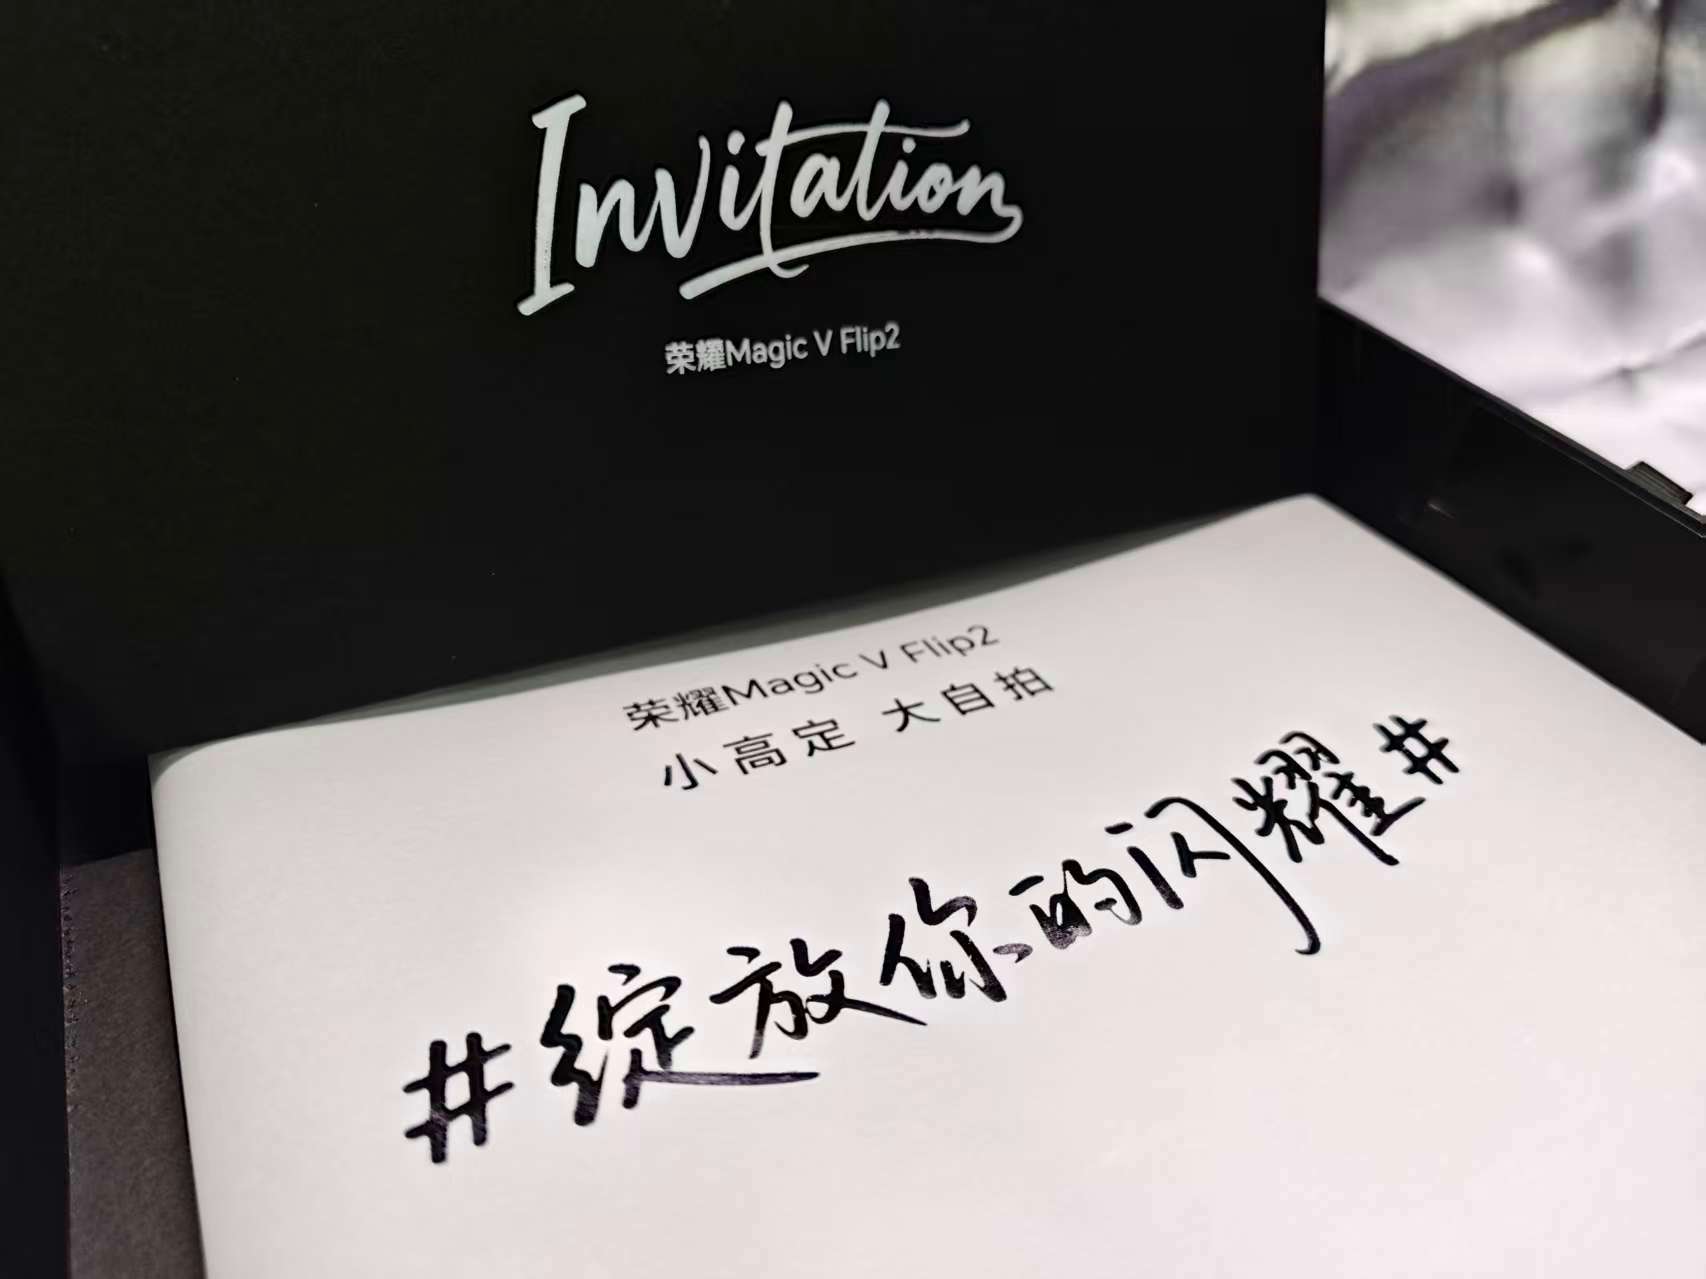 Invitation
荣耀Magic V Flip2
荣耀Magic V Flip2
小高定 大自拍
#绽放你的闪耀#